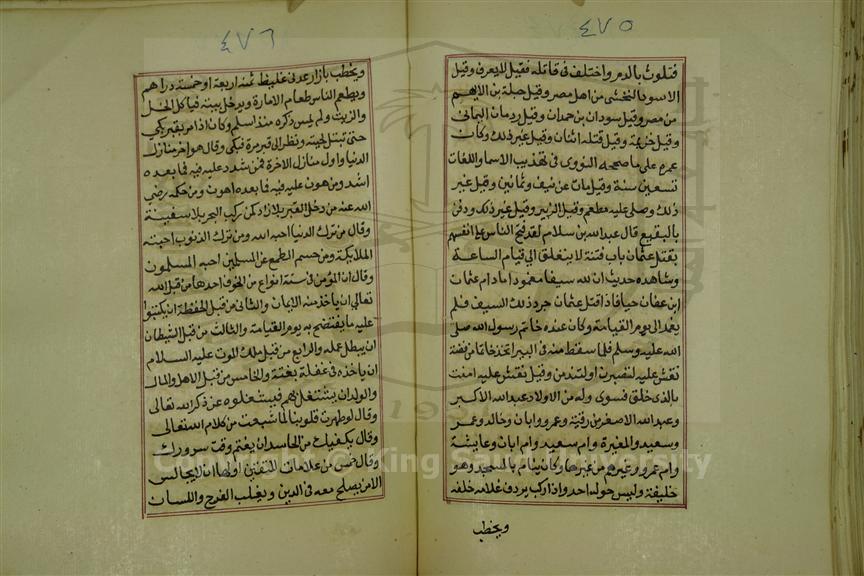 ٤٧٥
فتلوث بالدم واختلف فى قاتله فقيل لا يعرف وقيل
الاسود النخشى من اهل مصر وقيل جبلة بن الايهم
من مصر وقيل سودان بن حمدان وقيل ردمان اليمانى
وقيل خزيمة وقيل قتله اثنان وقيل غير ذلك وكان
عمره على ما صححه النووى فى تهذيب الاسما واللغات
تسعين سنة وقيل مات عن نيف وثمانين وقيل غير
ذلك وصلى عليه مطعم وقيل الزبير وقيل غير ذلك ودفن
بالبقيع قال عبدالله بن سلام لقد فتح الناس على انفسهم
بقتل عثمان باب فتنة لا ينغلق الى قيام الساعة
وشاهده حديث ان لله سيفا مغمودا مادام عثمان
ابن عفان حيا فاذا قتل عثمان جرد ذلك السيف فلم
يغمد الى يوم القيامة وكان عنده خاتم رسول الله صلى
الله عليه وسلم فلما سقط منه فى البير اتخذ خاتما من فضة
نقش عليه لتصبرن او لتندمن وقيل نقش عليه امنت
بالذى خلق فسوى وله من الاولاد عبدالله الاكبر
وعبدالله الاصغر من رقية وعمرو وابان وخالد وعمر
وسعيد والمغيرة وام سعيد وام ابان وعايشة
وام عمرو وغيرهم من غيرها وكان ينام بالمسجد وهو
خليفة وليس حوله احد واذا ركب يردف غلامه خلفه
ويخطب
٤٧٦
ويخطب بازار عدنى غليظ ثمنه اربعة او خمسة دراهم
ويطعم الناس طعام الامارة ويدخل بيته فياكل الخل
والزيت ولم يمس ذكره منذ اسلم وكان اذا مر بقبر بكى
حتى تبتل لحيته ونظر الى قبر مرة فبكى وقال هو اخر منازل
الدنيا واول منازل الاخرة فمن شدد عليه فيه فما بعده
اشد ومن هون عليه فيه فما بعده اهون ومن حكمه رضى
الله عنه من دخل القبر بلا زاد كمن ركب البحر بلا سفينة
وقال من ترك الدنيا احبه الله ومن ترك الذنوب احبته
الملايكة ومن حسم الطمع عن المسلمين احبه المسلمون
وقال ان المؤمن فى ستة انواع من الخوف احدها من قبل الله
تعالى ان ياخذ منه الايمان والثانى من قبل الحفظة ان يكتبوا
عليه ما يفتضح به يوم القيامة والثالث من قبل الشيطان
ان يبطل عمله والرابع من قبل ملك الموت عليه السلام
ان ياخذه فى غفلة بغتة والخامس من قبل الاهل والمال
والولد ان يشتغل بهم فيشغلوه عن ذكر الله تعالى
وقال لو طهرت قلوبنا لما شبعت من كلام الله تعالى
وقال يكفيك من الحاسد ان يغتم وقت سرورك
وقال خمس من علامات المتقين اولها ان لا يجالس
الا من يصلح معه فى الدين ويغلب الفرج واللسان
Copyright © King Saud University
1957